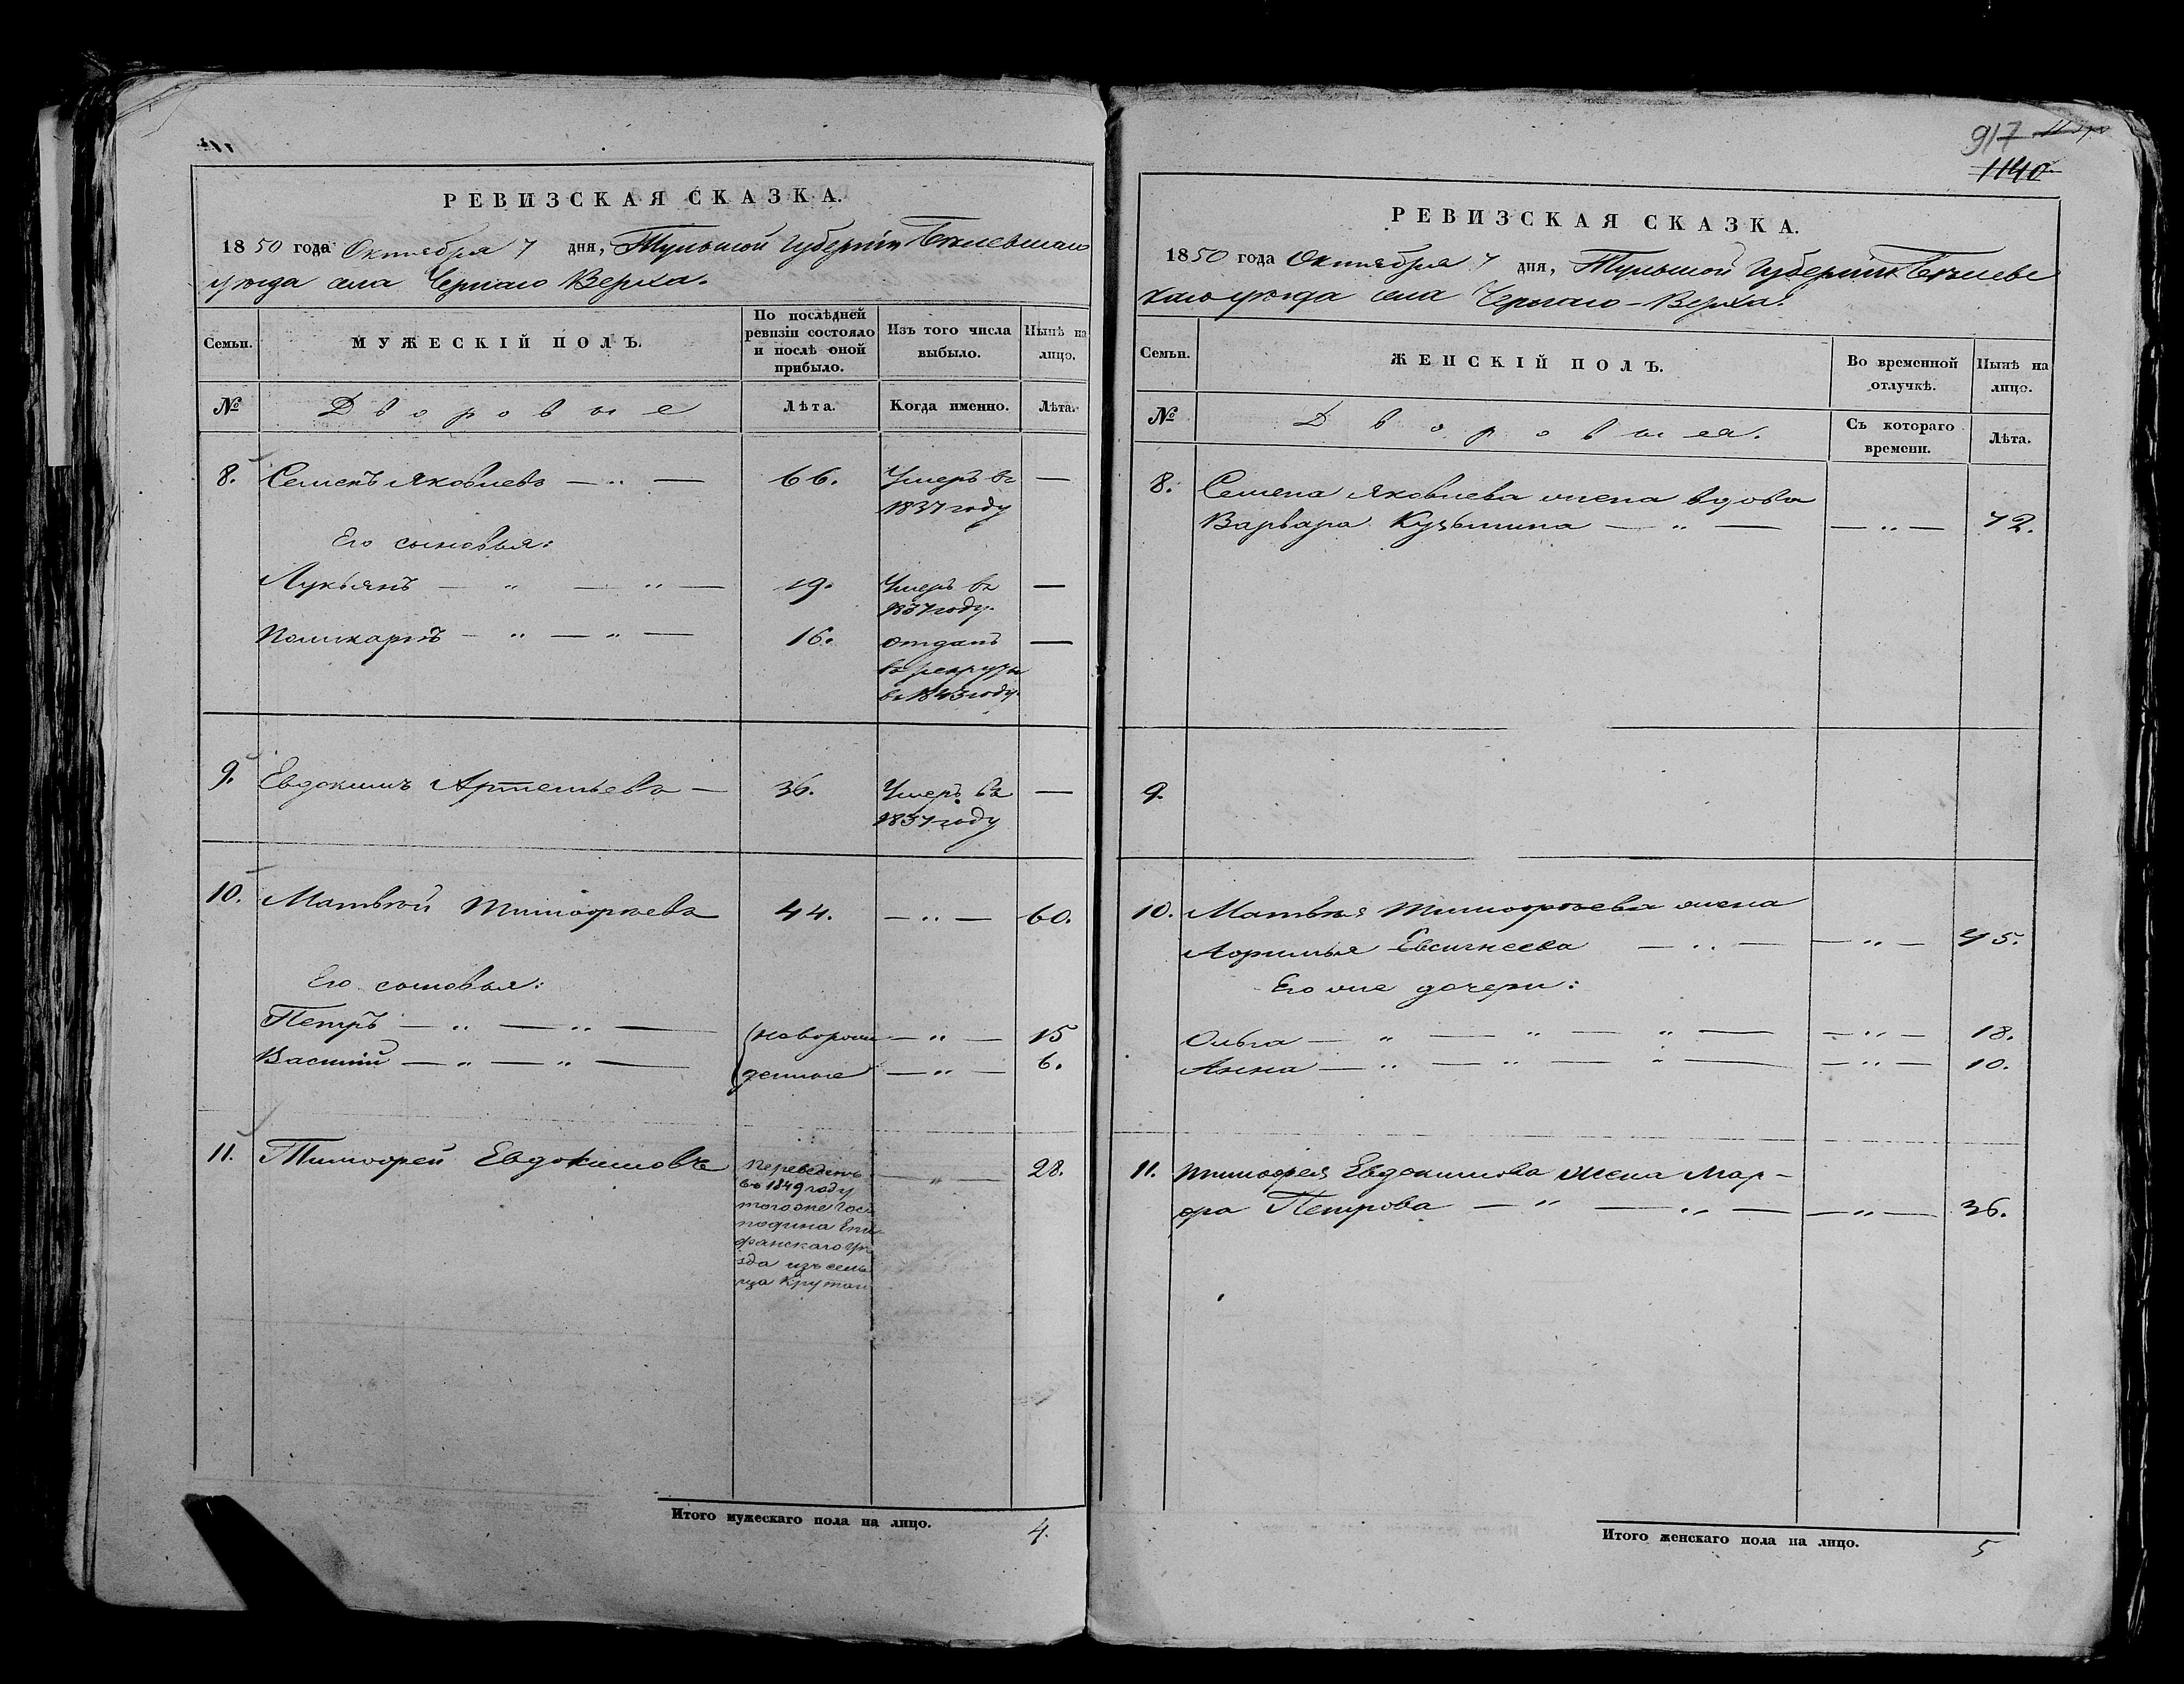 РЕВИЗСКАЯ СКАЗКА.
1850 года Октября 7 дня, Тульской Губерніи Бѣлевскаго
уѣзда села Чернаго Верха.
Семьи.
МУЖЕСКІЙ ПОЛЪ.
По послѣдней ревизіи состояло и послѣ оной прибыло.
Изъ того числа выбыло.
Нынѣ на лицо.
№
Дворовые
Лѣта.
Когда именно.
Лѣта.
8. Семенъ Яковлевъ — „ — 66. Умеръ въ —
1837 году
Его сыновья:
Лукьянъ — „ — „ — 19. Умеръ въ —
1837 году.
Поликарпъ — „ — „ — 16. отданъ —
въ рекруты
въ 1843 году.
9. Евдокимъ Артемьевъ — 36. Умеръ въ —
1837 году
10. Матвѣй Тимофѣевъ 44. — „ — 60.
Его сыновья:
Петръ — „ — „ — (новорож — „ — 15
Василій — „ — „ — денные — „ — 6.
11. Тимофей Евдокимовъ Переведенъ — „ — 28.
въ 1849 году
того же Гос
подина Епи
фанскаго уѣ
зда изъ сель
ца Крутаго
Итого мужескаго пола на лицо. 4.
917
1140
РЕВИЗСКАЯ СКАЗКА.
1850 года Октября 7 дня, Тульской Губерніи Бѣлевс
каго уѣзда села Чернаго-Верха.
Семьи.
ЖЕНСКІЙ ПОЛЪ.
Во временной отлучкѣ.
Нынѣ на лицо.
№
Дворовыя.
Съ котораго времени.
Лѣта.
8. Семена Яковлева жена вдова
Варвара Кузьмина — „ — — „ — 72.
9.
10. Матвѣя Тимофѣева жена
Евсигнеева — „ — — „ — 45.
Его же дочери:
Ольга — „ — „ — „ — — „ — 18.
Анна — „ — „ — „ — — „ — 10.
11. Тимофея Евдокимова жена Мар-
фа Петрова — „ — „ — — „ — 36.
Итого женскаго пола на лицо. 5